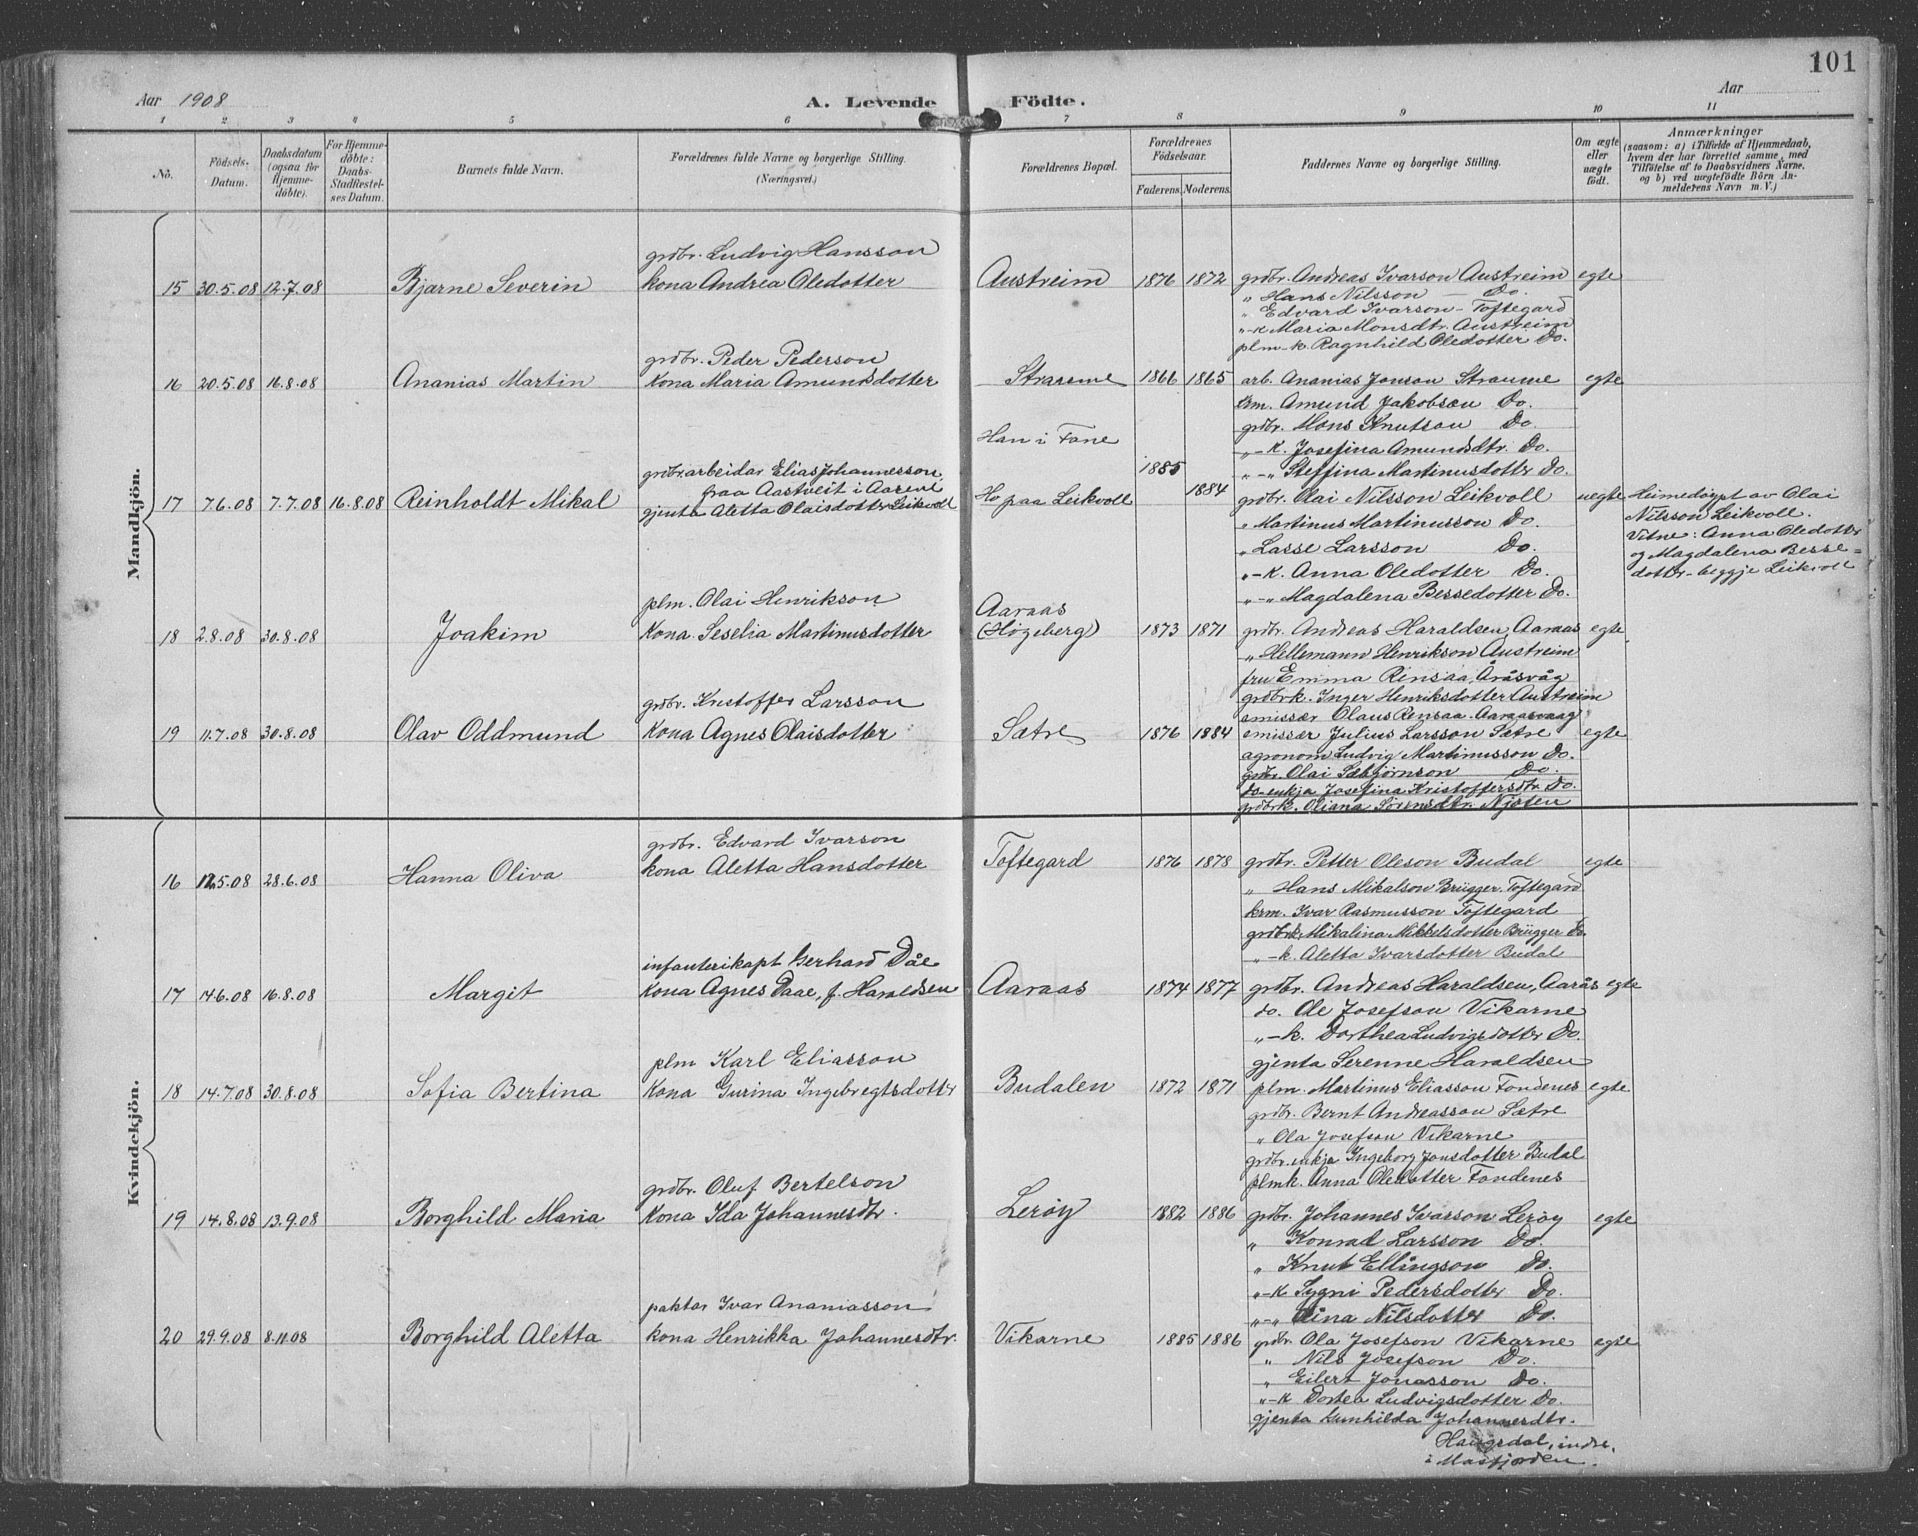 101
Aar 1908
A. Levende Födte.
Aar
1 2 3 4 5 6 7 8 9 10 11
No.
Födsels-Datum.
Daabsdatum (ogsaa for Hjemme-döbte).
For Hjemme-döbte: Daabs-Stadfæstel-ses Datum.
Barnets fulde Navn.
Forældrenes fulde Navne og borgerlige Stilling. (Næringsvei.)
Forældrenes Bopæl.
Forældrenes Födselsaar.
Faderens. Moderens.
Faddernes Navne og borgerlige Stilling.
Om ægte eller uægte födt.
Anmærkninger (saasom: a) i Tilfælde af Hjemmedaab, hvem der har forrettet samme, med Tilföielse af to Daabsvidners Navne, og b) ved uægtefödte Börn An-melderens Navn m. V.)
Mandkjön.
grdbr. Ludvig Hansson
15 30.5.08 12.7.08 Bjarne Severin kona Andrea Oledotter Austreim 1876 1872 grdbr. Andreas Ivarson Austreim egte
„ Hans Nilsson — Do.
„ Edvard Ivarson - Toftegard
„-k Maria Monsdtr. Austreim
plm-k. Ragnhild Oledotter Do.
grdbr. Peder Pederson
16 20.5.08 16.8.08 Ananias Martin Kona Maria Amundsdotter Straume 1866 1865 arb. Ananias Jonson Straume egte
krm. Amund Jakobsen Do.
grdbr. Mons Knutson Do.
„-k. Josefina Amundsdtr. Do.
„-„ Steffina Martinusdotter Do.
Han i Fane
1885
grdbr.arbeidar Elias Johannesson
fraa Aastveit i Aasene
17 7.6.08 7.7.08 16.8.08 Reinholdt Mikal gjenta Aletta Olaisdotter Leikvoll Ho paa Leikvoll 1884 grdbr. Olai Nilsson Leikvoll uegte Heimedøypt av Olai
Nilsson Leikvoll.
Vitne: Anna Oledotter
og Magdalena Besse=
dotter - beggje Leikvoll
„ Martinus Martinusson Do.
„ Lasse Larsson Do.
„-k. Anna Oledotter Do.
„-„ Magdalena Bessedotter Do.
plm. Olai Henrikson
Aaraas
18 2.8.08 30.8.08 Joakim Kona Seselia Martinusdotter (Høgeberg) 1873 1871 grdbr. Andreas Haraldsen, Aaraas egte
„ Hellemann Henrikson Austreim
fru Emma Rensaa, Åråsvåg
grdbrk. Inger Henriksdotter Austreim
emissær Olaus Rensaa. Aaraasvaag
grdbr. Kristoffer Larsson
19 11.7.08 30.8.08 Olav Oddmund Kona Agnes Olaisdotter Sætre 1876 1884 emissær Julius Larsson Sætre egte
agronom Ludvig Martinusson Do.
grdbr. Olai Sæbjørnson Do.
do-enkja Josefina Kristoffersdtr. Do.
grdbrk. Oliana Sørensdtr. Njøten
Kvindekjön.
grdbr. Edvard Ivarson
16 12.5.08 28.6.08 Hanna Oliva kona Aletta Hansdotter Toftegard 1876 1878 grdbr. Petter Oleson Budal egte
„ Hans Mikalson Brügger. Toftegard
krm. Ivar Rasmusson Toftegard
grdbrk. Mikalina Mikkelsdotter Brügger Do.
„-k. Aletta Ivarsdotter Budal
infanterikapt Gerhard Dåe
17 14.6.08 16.8.08 Margit Kona Agnes Daae, f. Haraldsen Aaraas 1874 1877 grdbr. Andreas Haraldsen, Aarås egte
do. Ole Josefson Vikarne
„-k. Dorthea Ludvigsdotter Do.
gjenta Serenne Haraldsen
plm Karl Eliasson
18 14.7.08 30.8.08 Sofia Bertina Kona Gurina Ingebregtsdotter Budalen 1872 1871 plm. Martinus Eliasson Fondenes egte
grdbr. Bernt Andreasson Sætre
„ Ola Josefson Vikarne
grdbr.enkja Ingeborg Jonsdotter Budal
plmk. Anna Oledotter Fondenes
grdbr. Oluf Bertelson
19 14.8.08 13.9.08 Borghild Maria Kona Ida Johannesdtr. Lerøy 1882 1886 grdbr. Johannes Ivarsson Lerøy egte
„ Konrad Larsson Do.
„ Knut Ellingson Do.
„-k Sygni Pedersdotter Do.
„-„ Lina Nilsdotter Do.
paktar Ivar Ananiasson
20 29.9.08 8.11.08 Borghild Aletta kona Henrikka Johannesdtr. Vikarne 1885 1886 grdbr. Ola Josefson Vikarne egte
„ Nils Josefson Do.
„ Eilert Jonasson Do.
„-k Dortea Ludvigsdotter Do.
gjenta Gunhilda Johannesdtr.
Haugsdal, indre,
i Masfjorden.